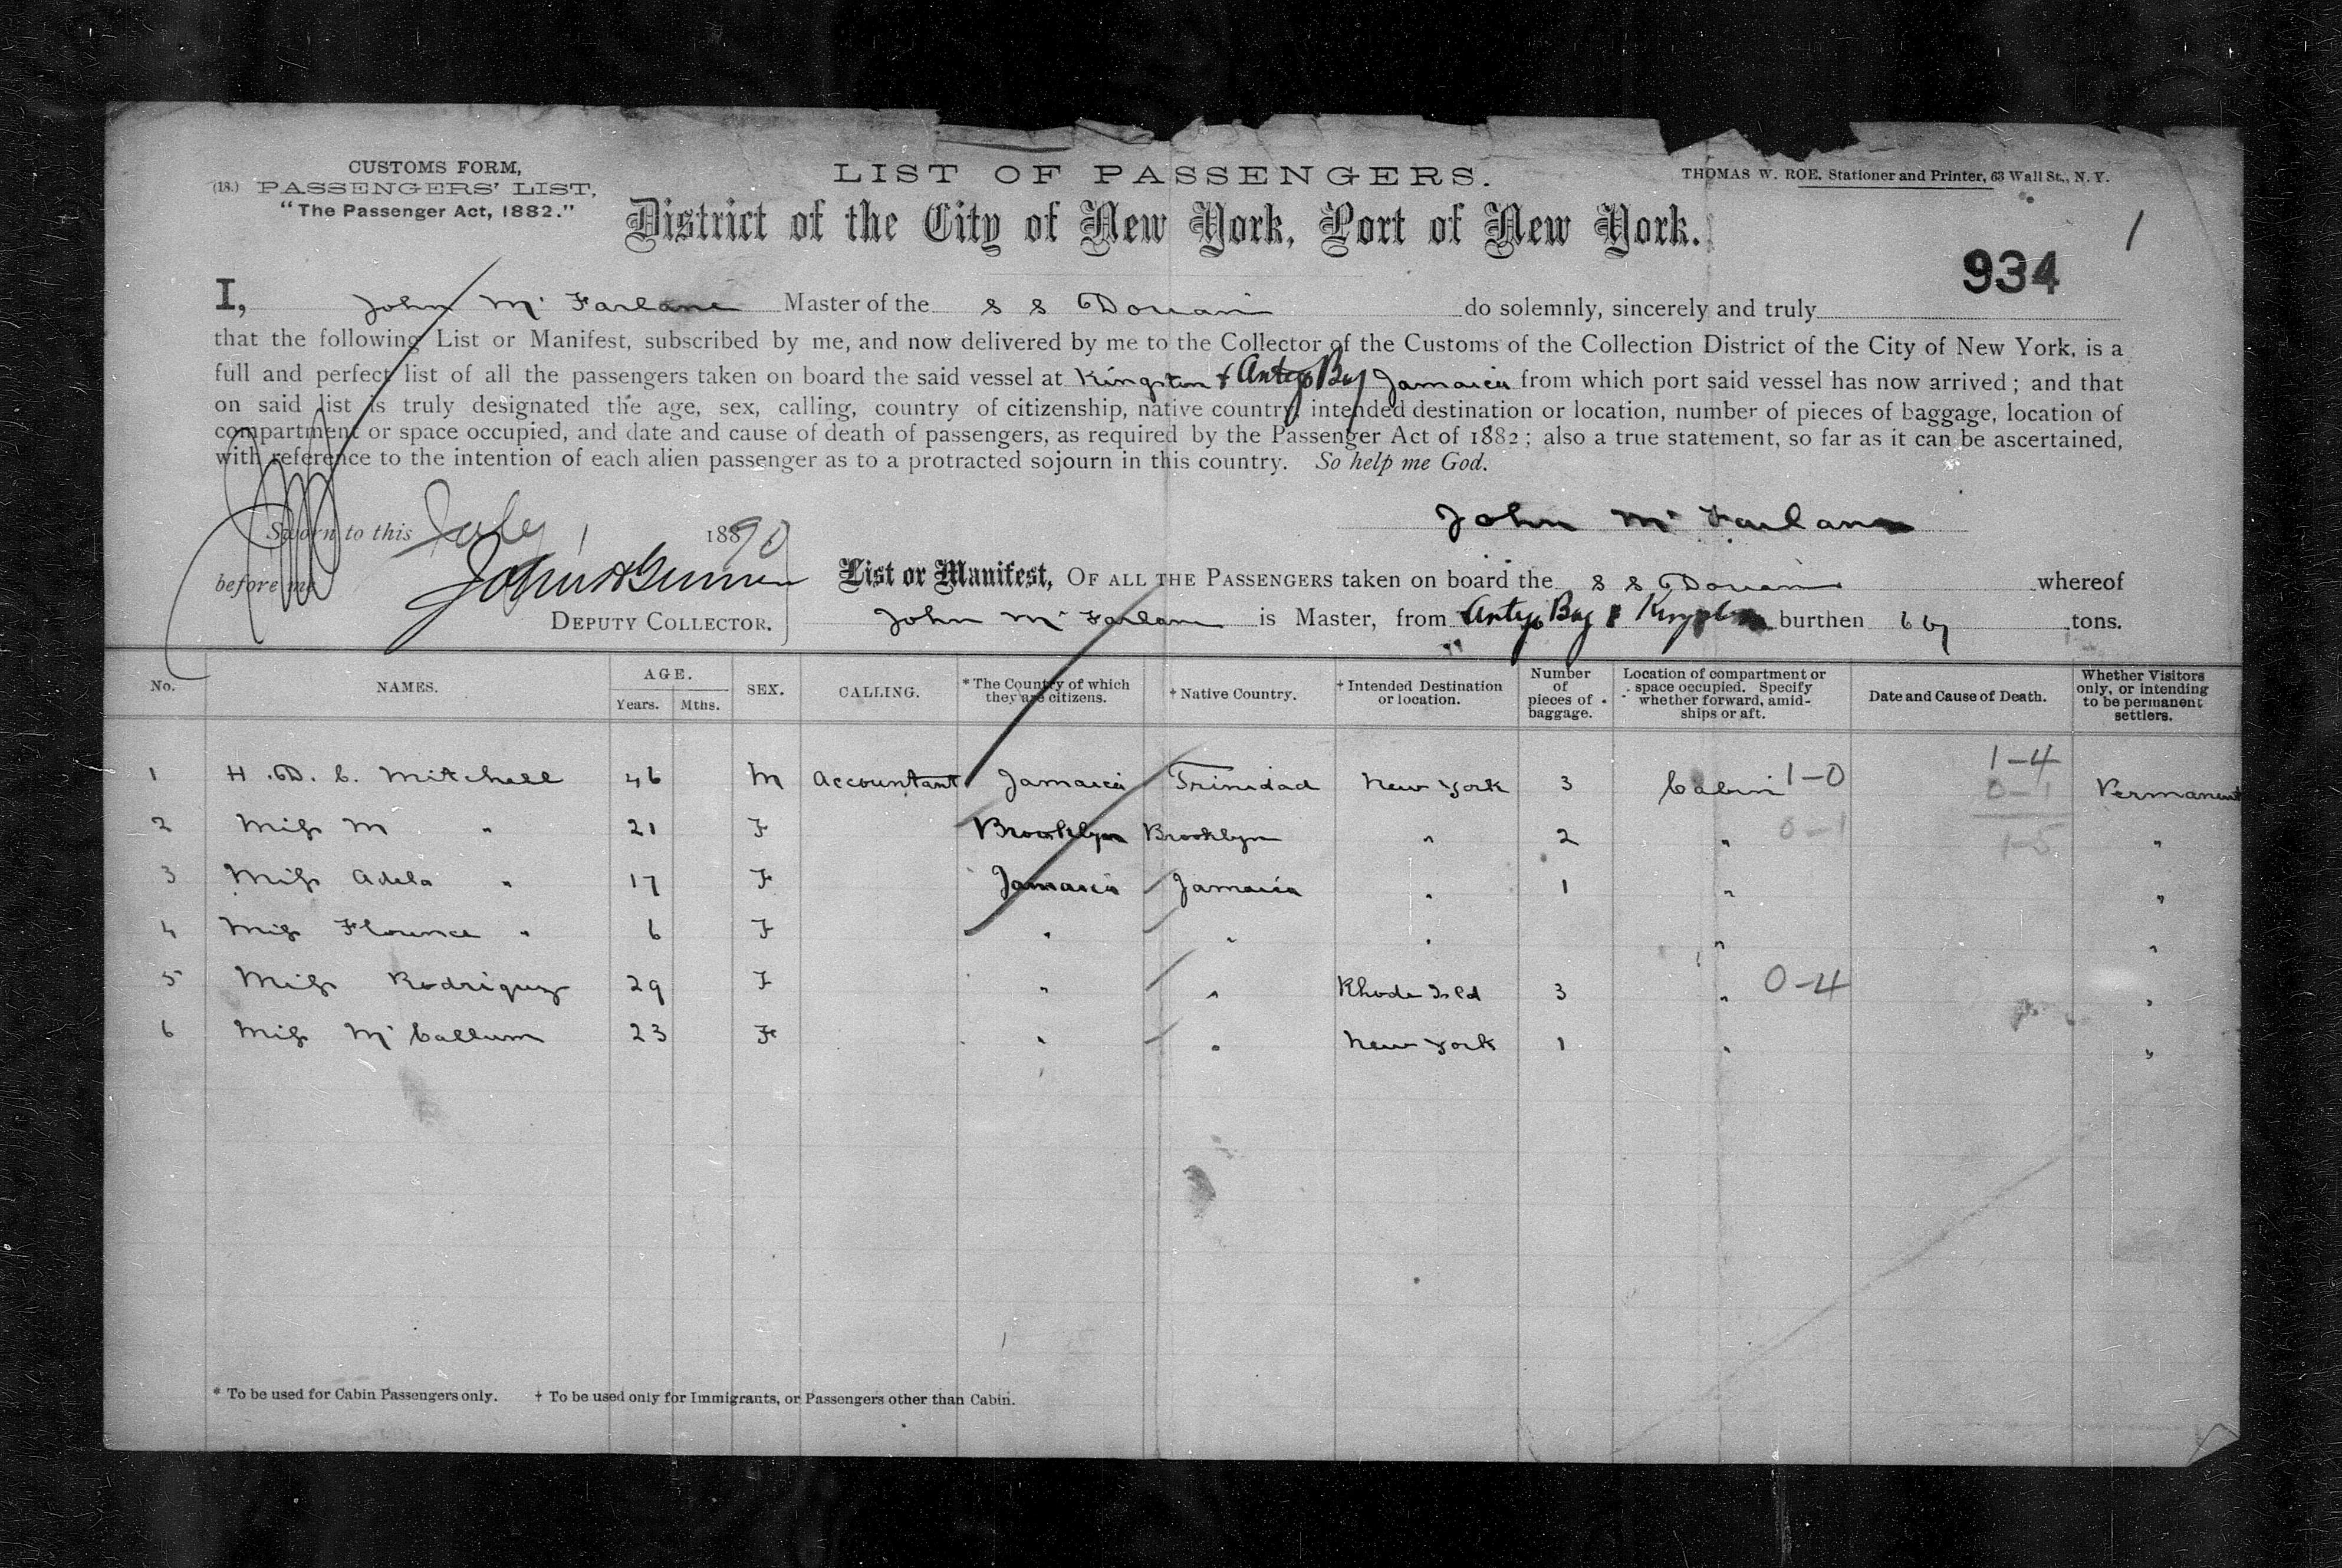 CUSTOMS FORM,
(18.) PASSENGERS' LIST,
"The Passenger Act, 1882."
LIST OF PASSENGERS.
THOMAS W. ROE, Stationer and Printer, 63 Wall St., N. Y.
District of the City of New York, Port of New York.
1
934
I, John Mc Farlane Master of the S S Douan do solemnly, sincerely and truly
that the following List or Manifest, subscribed by me, and now delivered by me to the Collector of the Customs of the Collection District of the City of New York, is a
full and perfect list of all the passengers taken on board the said vessel at Kingston & Anto Bay Jamaica from which port said vessel has now arrived; and that
on said list is truly designated the age, sex, calling, country of citizenship, native country, intended destination or location, number of pieces of baggage, location of
compartment or space occupied, and date and cause of death of passengers, as required by the Passenger Act of 1882; also a true statement, so far as it can be ascertained,
with reference to the intention of each alien passenger as to a protracted sojourn in this country. So help me God.
John Mc Farlane
Sworn to this July 1 1890
before me
DEPUTY COLLECTOR.
List or Manifest, OF ALL THE PASSENGERS taken on board the S S Douan whereof
John Mc Farlane is Master, from Anto Bay & Kingston burthen 667 tons.
No. NAMES. AGE. Years. Mths. SEX. CALLING. * The Country of which they are citizens. † Native Country. † Intended Destination or location. Number of pieces of baggage. Location of compartment or space occupied. Specify whether forward, amidships or aft. Date and Cause of Death. Whether Visitors only, or intending to be permanent settlers.
1 H. D. C. Mitchell 46 M Accountant Jamaica Trinidad New York 3 Cabin 1-0 1-4 Permanent
0-1
2 Miss M " 21 F Brooklyn Brooklyn " 2 " 0-1 1-5 "
3 Miss Adela " 17 F Jamaica Jamaica " 1 " "
4 Miss Florence " 6 F " " " " "
5 Miss Rodriguez 29 F " " Rhode Isld 3 " 0-4 "
6 Miss McCallum 23 F " " New York 1 " "
* To be used for Cabin Passengers only. † To be used only for Immigrants, or Passengers other than Cabin.